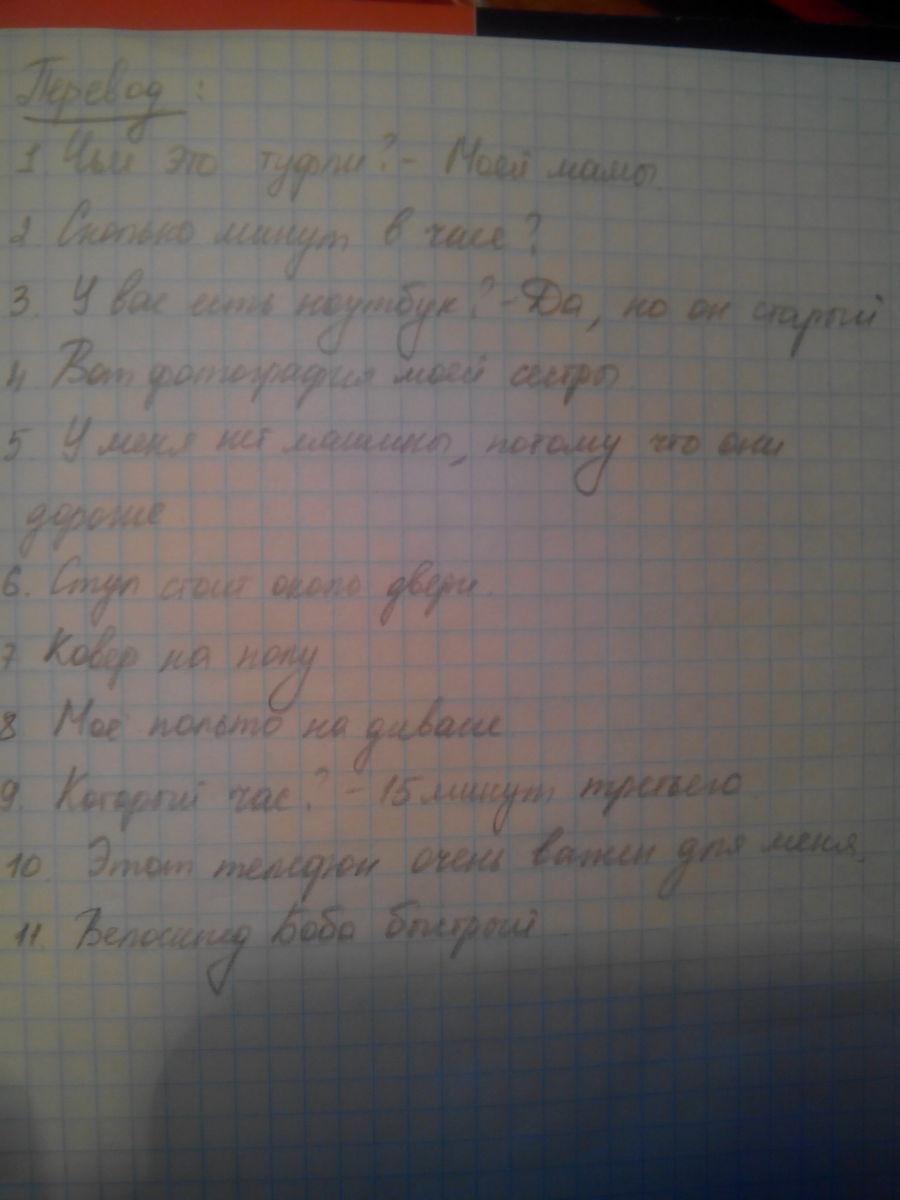 Перевод:
1 Чьи это туфли? - Моей мамы
2 Сколько минут в часе?
3. У вас есть ноутбук? - Да, но он старый
4 Вот фотография моей сестры
5 У меня нет машины, потому что они
дорогие
6. Стул стоит около двери.
7 Ковер на полу
8 Моё пальто на диване
9. Который час? - 15 минут третьего
10. Этот телефон очень важен для меня.
11. Велосипед Боба быстрый